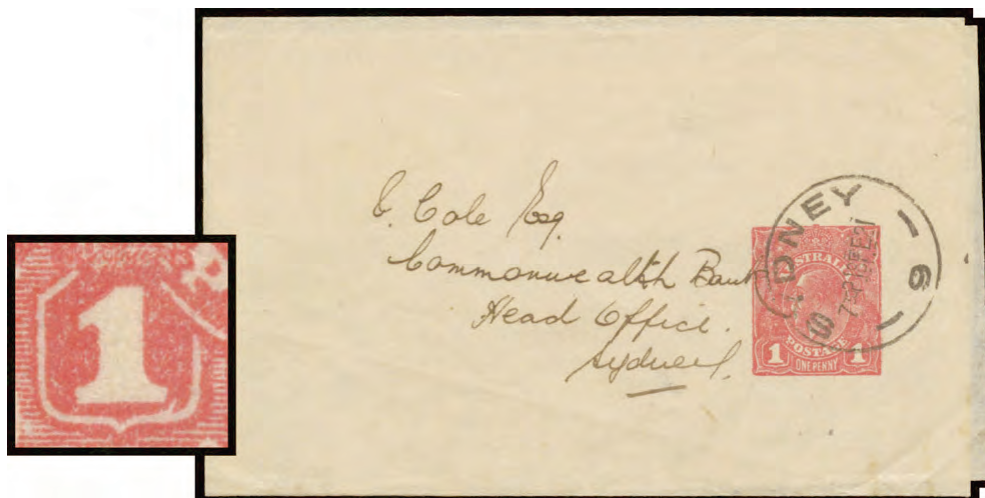 E. Cole Esq.
Commonwealth Bank
Head Office.
Sydney.
SYDNEY
6
AUSTRALIA
POSTAGE
1 1
ONE PENNY
1